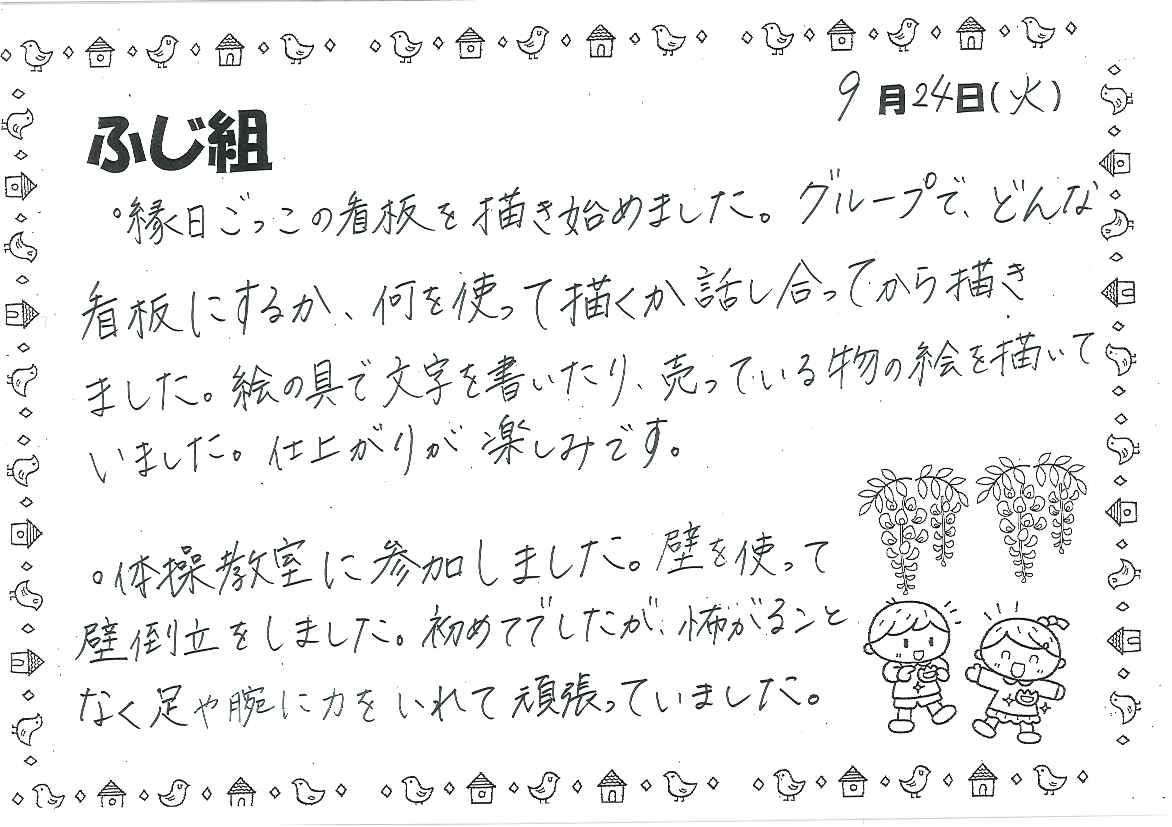 9月24日(火)
ふじ組
。縁日ごっこの看板を描き始めました。グループで、どんな
看板にするか、何を使って描くか話し合ってから描き
ました。絵の具で文字を書いたり、売っている物の絵を描いて
いました。仕上がりが楽しみです。
。体操教室に参加しました。壁を使って
壁倒立をしました。初めてでしたが、怖がること
なく足や腕に力をいれて頑張っていました。